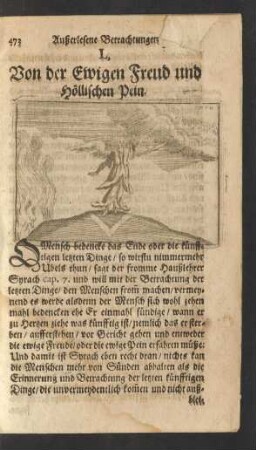 473 Außerlesene Betrachtungen
L.
Von der Ewigen Freud und
Höllischen Pein.
O Mensch bedencke das Ende oder die künff-
tigen letzten Dinge/ so wirstu nimmermehr
Ubels thun/ sagt der fromme Haußlehrer
Syrach cap. 7. und wil mit der Betrachtung der
letzten Dinge/ den Menschen from machen/ vermey-
nend es werde alsdenn der Mensch sich wohl zehen
mahl bedencken ehe Er einmahl sündige/ wann er
zu Hertzen ziehe was künfftig ist/ nemlich das er ster-
ben/ aufferstehen/ vor Gericht gehen und entweder
die ewige Freude/ oder die ewige Pein erfahren müße:
Und damit ist Syrach eben recht dran/ nichts kan
die Menschen mehr von Sünden abhalten als die
Erinnerung und Betrachtung der letzten künfftigen
Dinge/ die unvermeydentlich kommen und nicht auß-
blei-